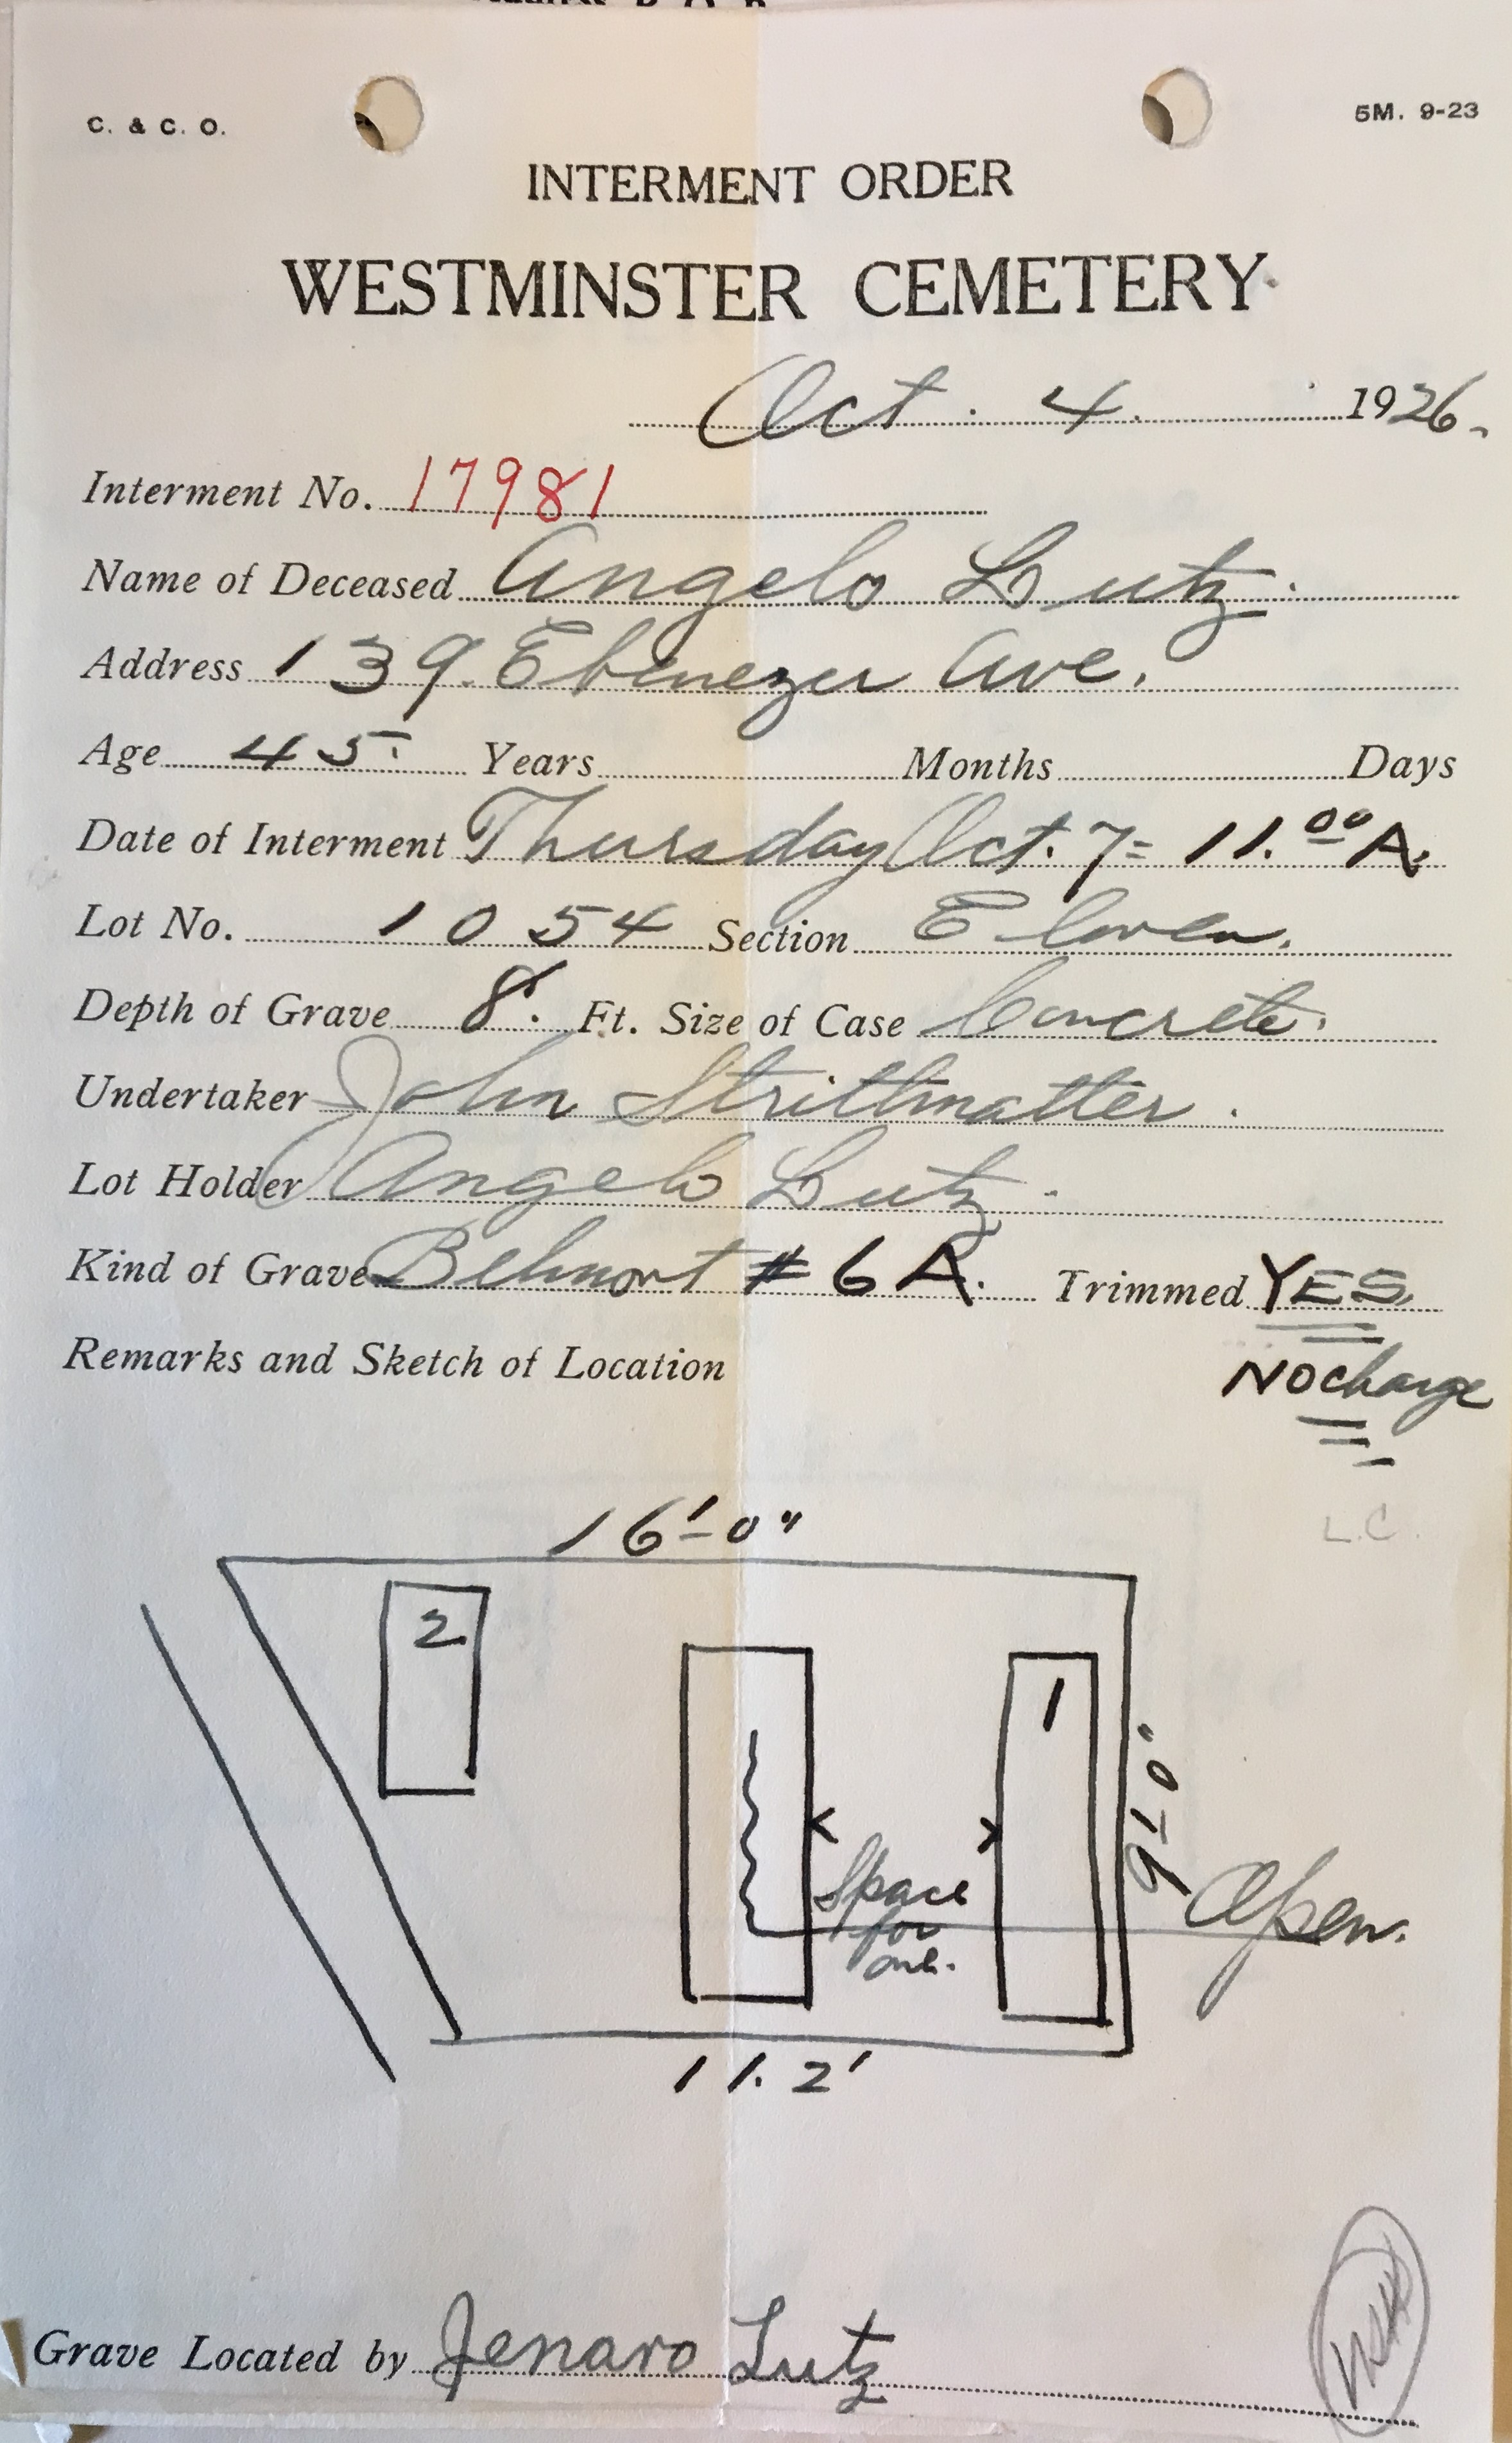 C. & C. O.
5M. 9-23
INTERMENT ORDER
WESTMINSTER CEMETERY
Oct. 4. 1926.
Interment No. 17981
Name of Deceased Angelo Lutz.
Address 139 Ebenezer Ave.
Age 45 Years Months Days
Date of Interment Thursday Oct. 7= 11.00 A.
Lot No. 1054 Section Eleven.
Depth of Grave 8'. Ft. Size of Case Concrete.
Undertaker John Strittmatter.
Lot Holder Angelo Lutz.
Kind of Grave Belmont #6 A. Trimmed YES.
Remarks and Sketch of Location
No charge
L.C.
16'-0"
2
1
9'-0"
Space
for
one.
Open.
11.2'
Grave Located by Jenaro Lutz